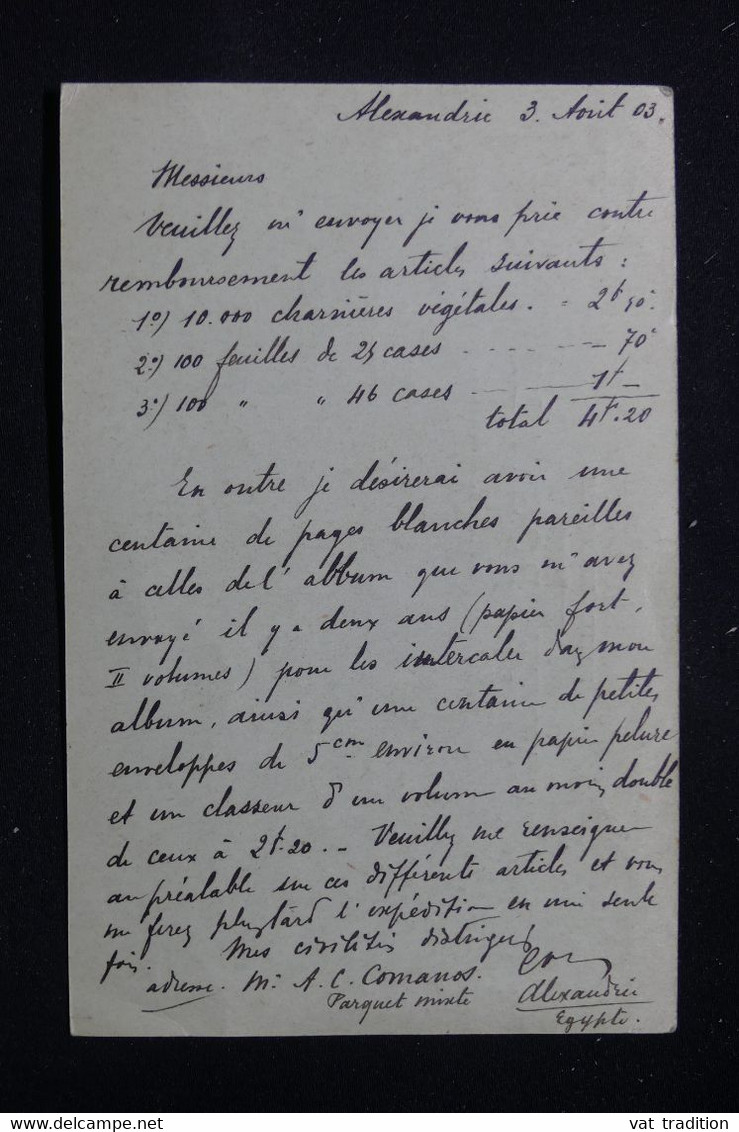 Alexandrie 3. Août 03.
Messieurs
Veuillez m'envoyer je vous prie contre
remboursement les articles suivants :
1º) 10.000 charnières végétales. = 2f 50c
2º) 100 feuilles de 25 cases - - - - - - 70c
3º) 100 " " 46 cases - - - 1f -
total 4f.20
En outre je désirerai avoir une
centaine de pages blanches pareilles
à celles de l'album que vous m'avez
envoyé il y a deux ans (papier fort,
II volumes) pour les intercaler dans mon
album, ainsi qu'une centaine de petites
enveloppes de 5cm environ en papier pelure
et un classeur d'un volume au moins double
de ceux à 2f.20. - Veuillez me renseigner
au préalable sur ces différents articles et vous
me ferez plus tard l'expédition en une seule
fois. Mes civilités distinguées
adresse. Mr. A. C. Comanos.
Parquet mixte Alexandrie
Egypte.
vat tradition